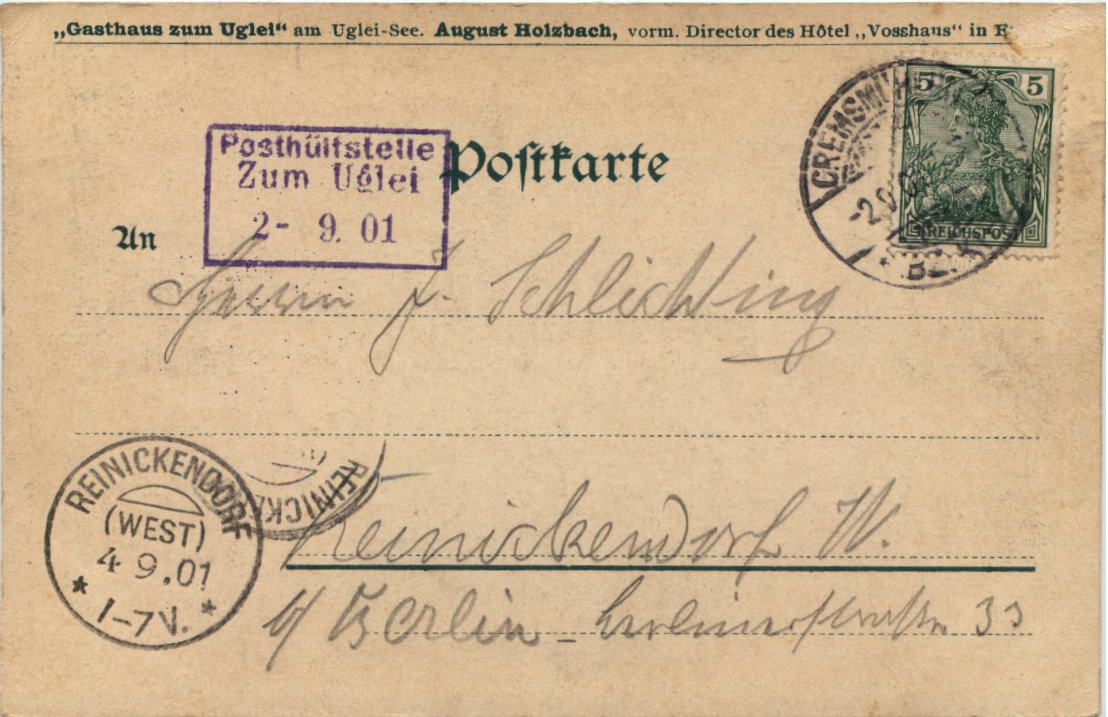 „Gasthaus zum Uglei“ am Uglei-See. August Holzbach, vorm. Director des Hôtel „Vosshaus“ in E
Posthülfstelle
Zum Uglei
2- 9. 01
Postkarte
5 5
REICHSPOST
GREMSMÜHLEN
-2.9.01
* BZ.
An
Herrn J. Schlichting
REINICKENDORF
(WEST)
4 9.01
* 1-7V. *
REINICKE
Reinickendorf W.
b/ Berlin – Berlinerstraße 33